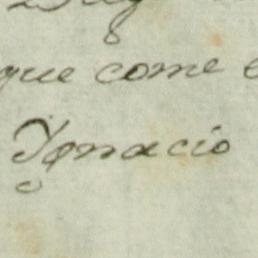 que come
Ygnacio